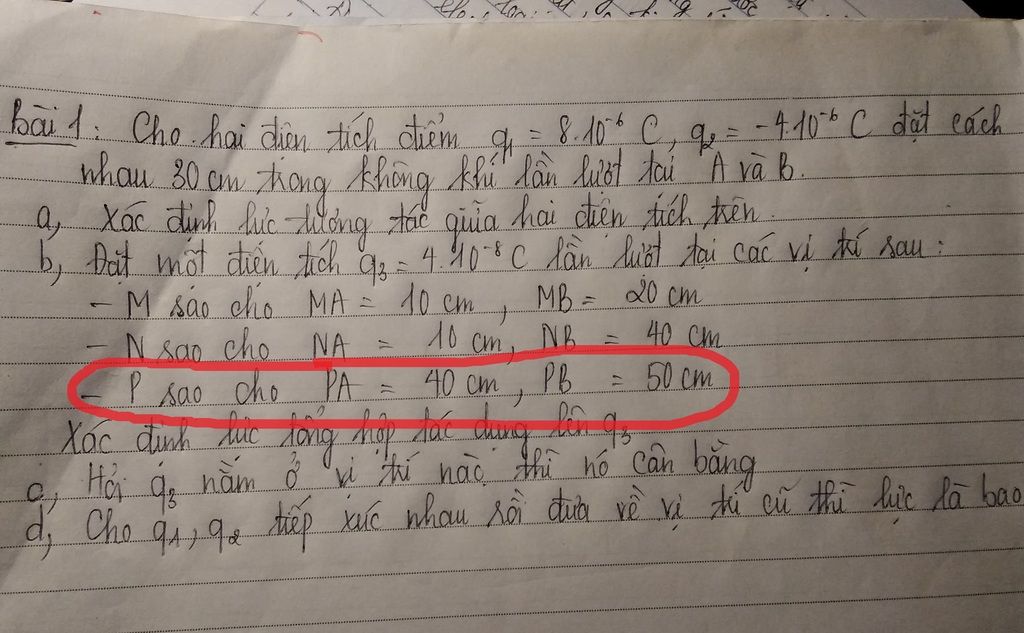 Bài 1: Cho hai điện tích điểm q1 = 8.10⁻⁶ C, q2 = -4.10⁻⁶ C đặt cách
nhau 30 cm trong không khí lần lượt tại A và B.
a, Xác định lực tương tác giữa hai điện tích trên.
b, Đặt một điện tích q3 = 4.10⁻⁸ C lần lượt tại các vị trí sau:
- M sao cho MA = 10 cm, MB = 20 cm
- N sao cho NA = 10 cm, NB = 40 cm
- P sao cho PA = 40 cm, PB = 50 cm
Xác định lực tổng hợp tác dụng lên q3
c, Hỏi q3 nằm ở vị trí nào thì nó cân bằng
d, Cho q1, q2 tiếp xúc nhau rồi đưa về vị trí cũ thì lực là bao